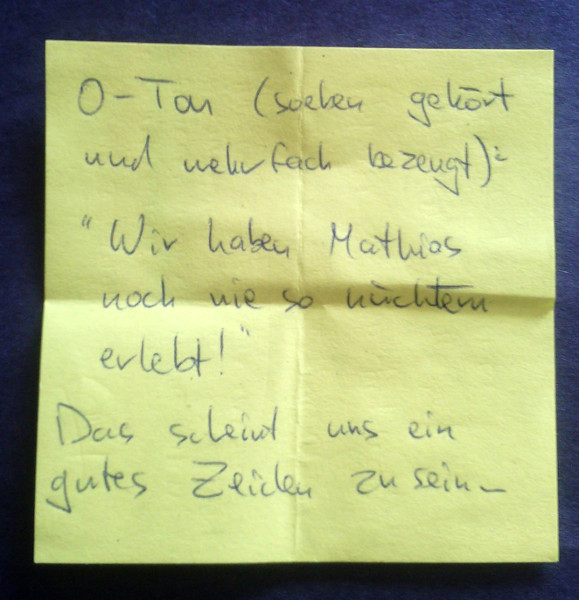 O-Ton (soeben gehört
und mehrfach bezeugt):
"Wir haben Mathias
noch nie so nüchtern
erlebt!"
Das scheint uns ein
gutes Zeichen zu sein_